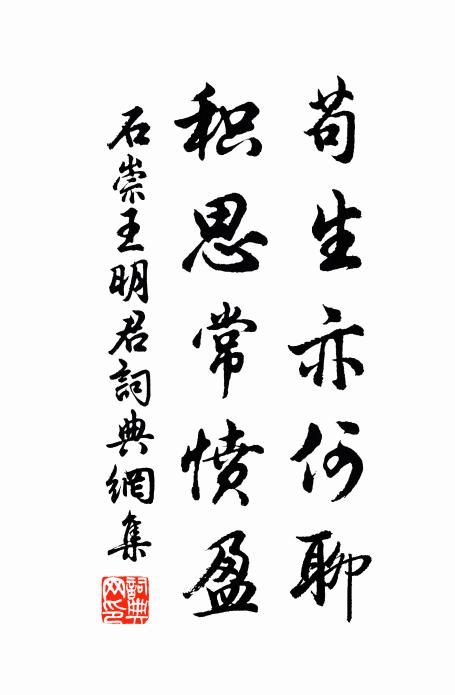 苟生亦何聊
积思常愤盈
石崇王明君詞典網集
詞典網印